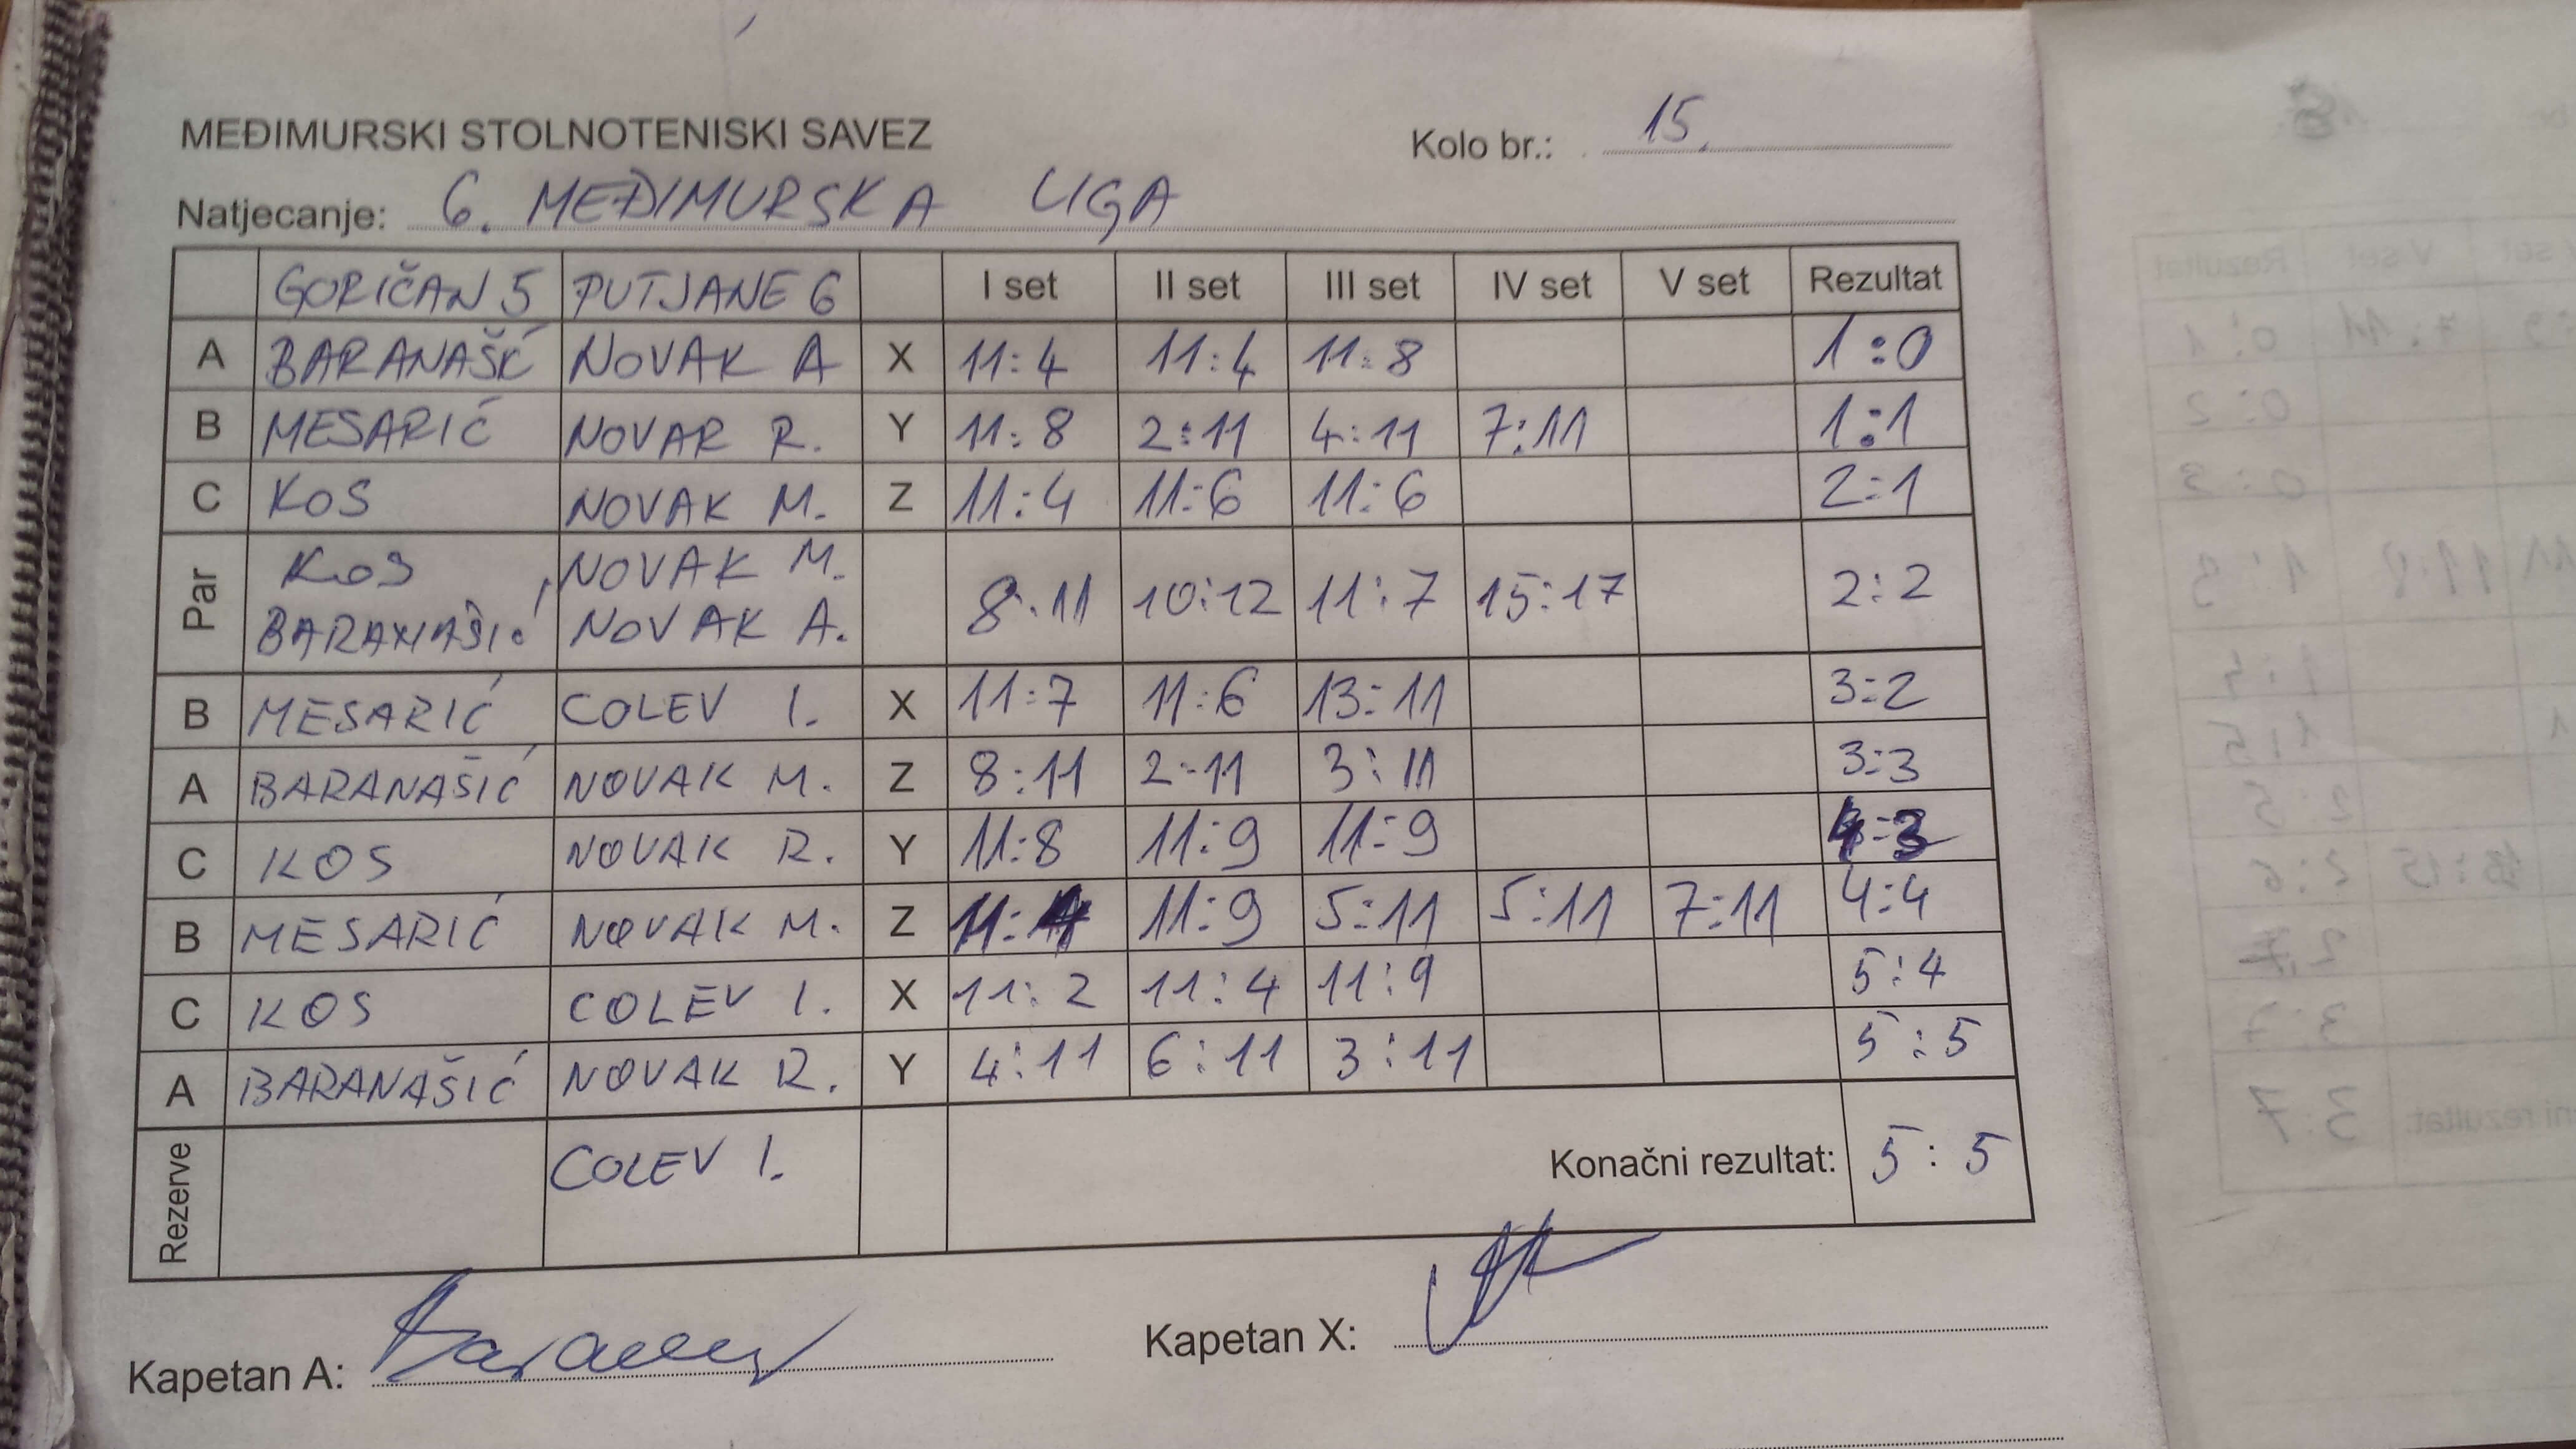 MEĐIMURSKI STOLNOTENISKI SAVEZ
Kolo br.: 15.
Natjecanje: 6. MEĐIMURSKA LIGA
GORIČAN 5 PUTJANE 6 I set II set III set IV set V set Rezultat
A BARANAŠĆ NOVAK A X 11:4 11:4 11:8 1:0
B MESARIĆ NOVAR R. Y 11:8 2:11 4:11 7:11 1:1
C KOS NOVAK M. Z 11:4 11:6 11:6 2:1
Par KOS NOVAK M. 8:11 10:12 11:7 15:17 2:2
BARANAŠIĆ NOVAK A.
B MESARIĆ COLEV I. X 11:7 11:6 13:11 3:2
A BARANAŠIĆ NOVAK M. Z 8:11 2:11 3:11 3:3
C KOS NOVAK R. Y 11:8 11:9 11:9 4:3
B MESARIĆ NOVAK M. Z 11:9 5:11 5:11 7:11 4:4
C KOS COLEV I. X 11:2 11:4 11:9 5:4
A BARANAŠIĆ NOVAK R. Y 4:11 6:11 3:11 5:5
Rezerve COLEV I. Konačni rezultat: 5:5
Kapetan A:
Kapetan X: